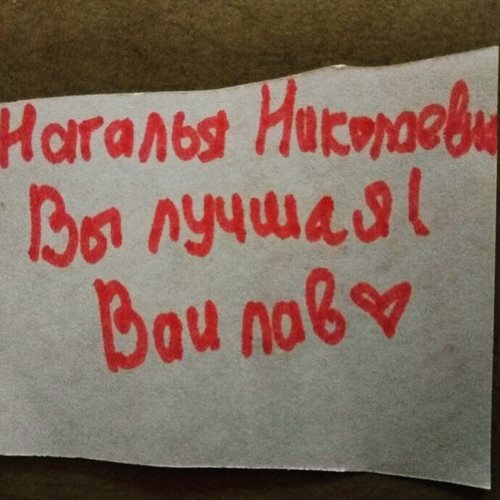 Наталья Николаевн
Вы лучшая!
Ваи лав